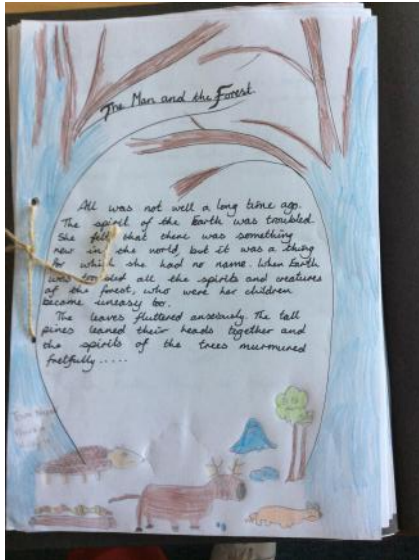 The Man and the Forest.
All was not well a long time ago.
The spirit of the Earth was troubled.
She felt that there was something
new in the world, but it was a thing
for which she had no name. When Earth
was troubled all the spirits and creatures
of the forest, who were her children
became uneasy too.
The leaves fluttered anxiously. The tall
pines leaned their heads together and
the spirits of the trees murmured
fretfully.....